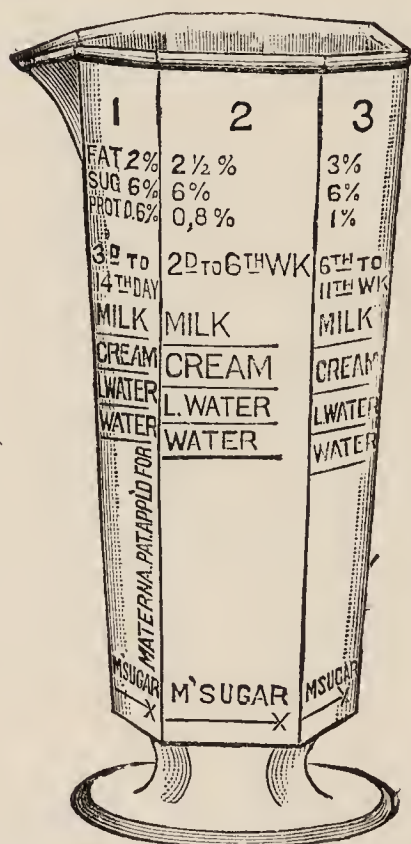 1
FAT 2%
SUG 6%
PROT 0.6%
3D TO
14TH DAY
MILK
CREAM
L.WATER
WATER
MATERNA. PAT. APP'D FOR
M'SUGAR
X
2
2 1/2 %
6%
0,8%
2D TO 6TH WK
MILK
CREAM
L. WATER
WATER
M'SUGAR
X
3
3%
6%
1%
6TH TO
11TH WK
MILK
CREAM
L.WATER
WATER
MSUGAR
X